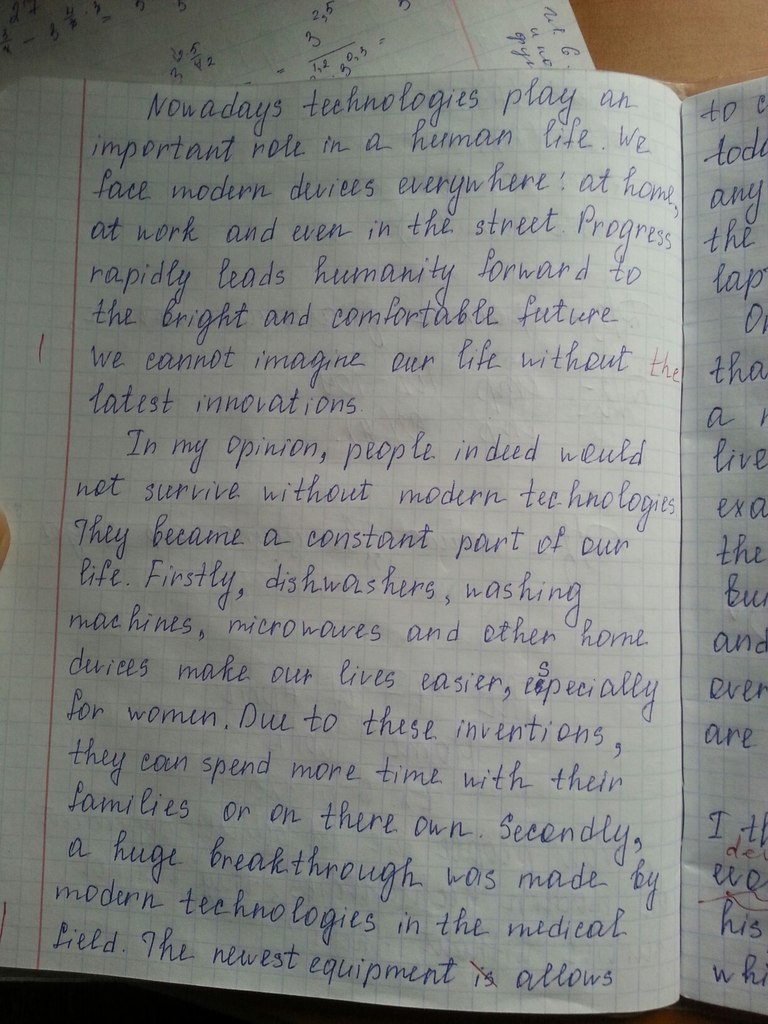 Nowadays technologies play an
important role in a human life. We
face modern devices everywhere: at home,
at work and even in the street. Progress
rapidly leads humanity forward to
the bright and comfortable future.
We cannot imagine our life without the
latest innovations.
In my opinion, people indeed would
not survive without modern technologies
They became a constant part of our
life. Firstly, dishwashers, washing
machines, microwaves and other home
devices make our lives easier, especially
for women. Due to these inventions,
they can spend more time with their
families or on there own. Secondly,
a huge breakthrough was made by
modern technologies in the medical
field. The newest equipment is allows
to
any
the
a
the
and
are
I
his